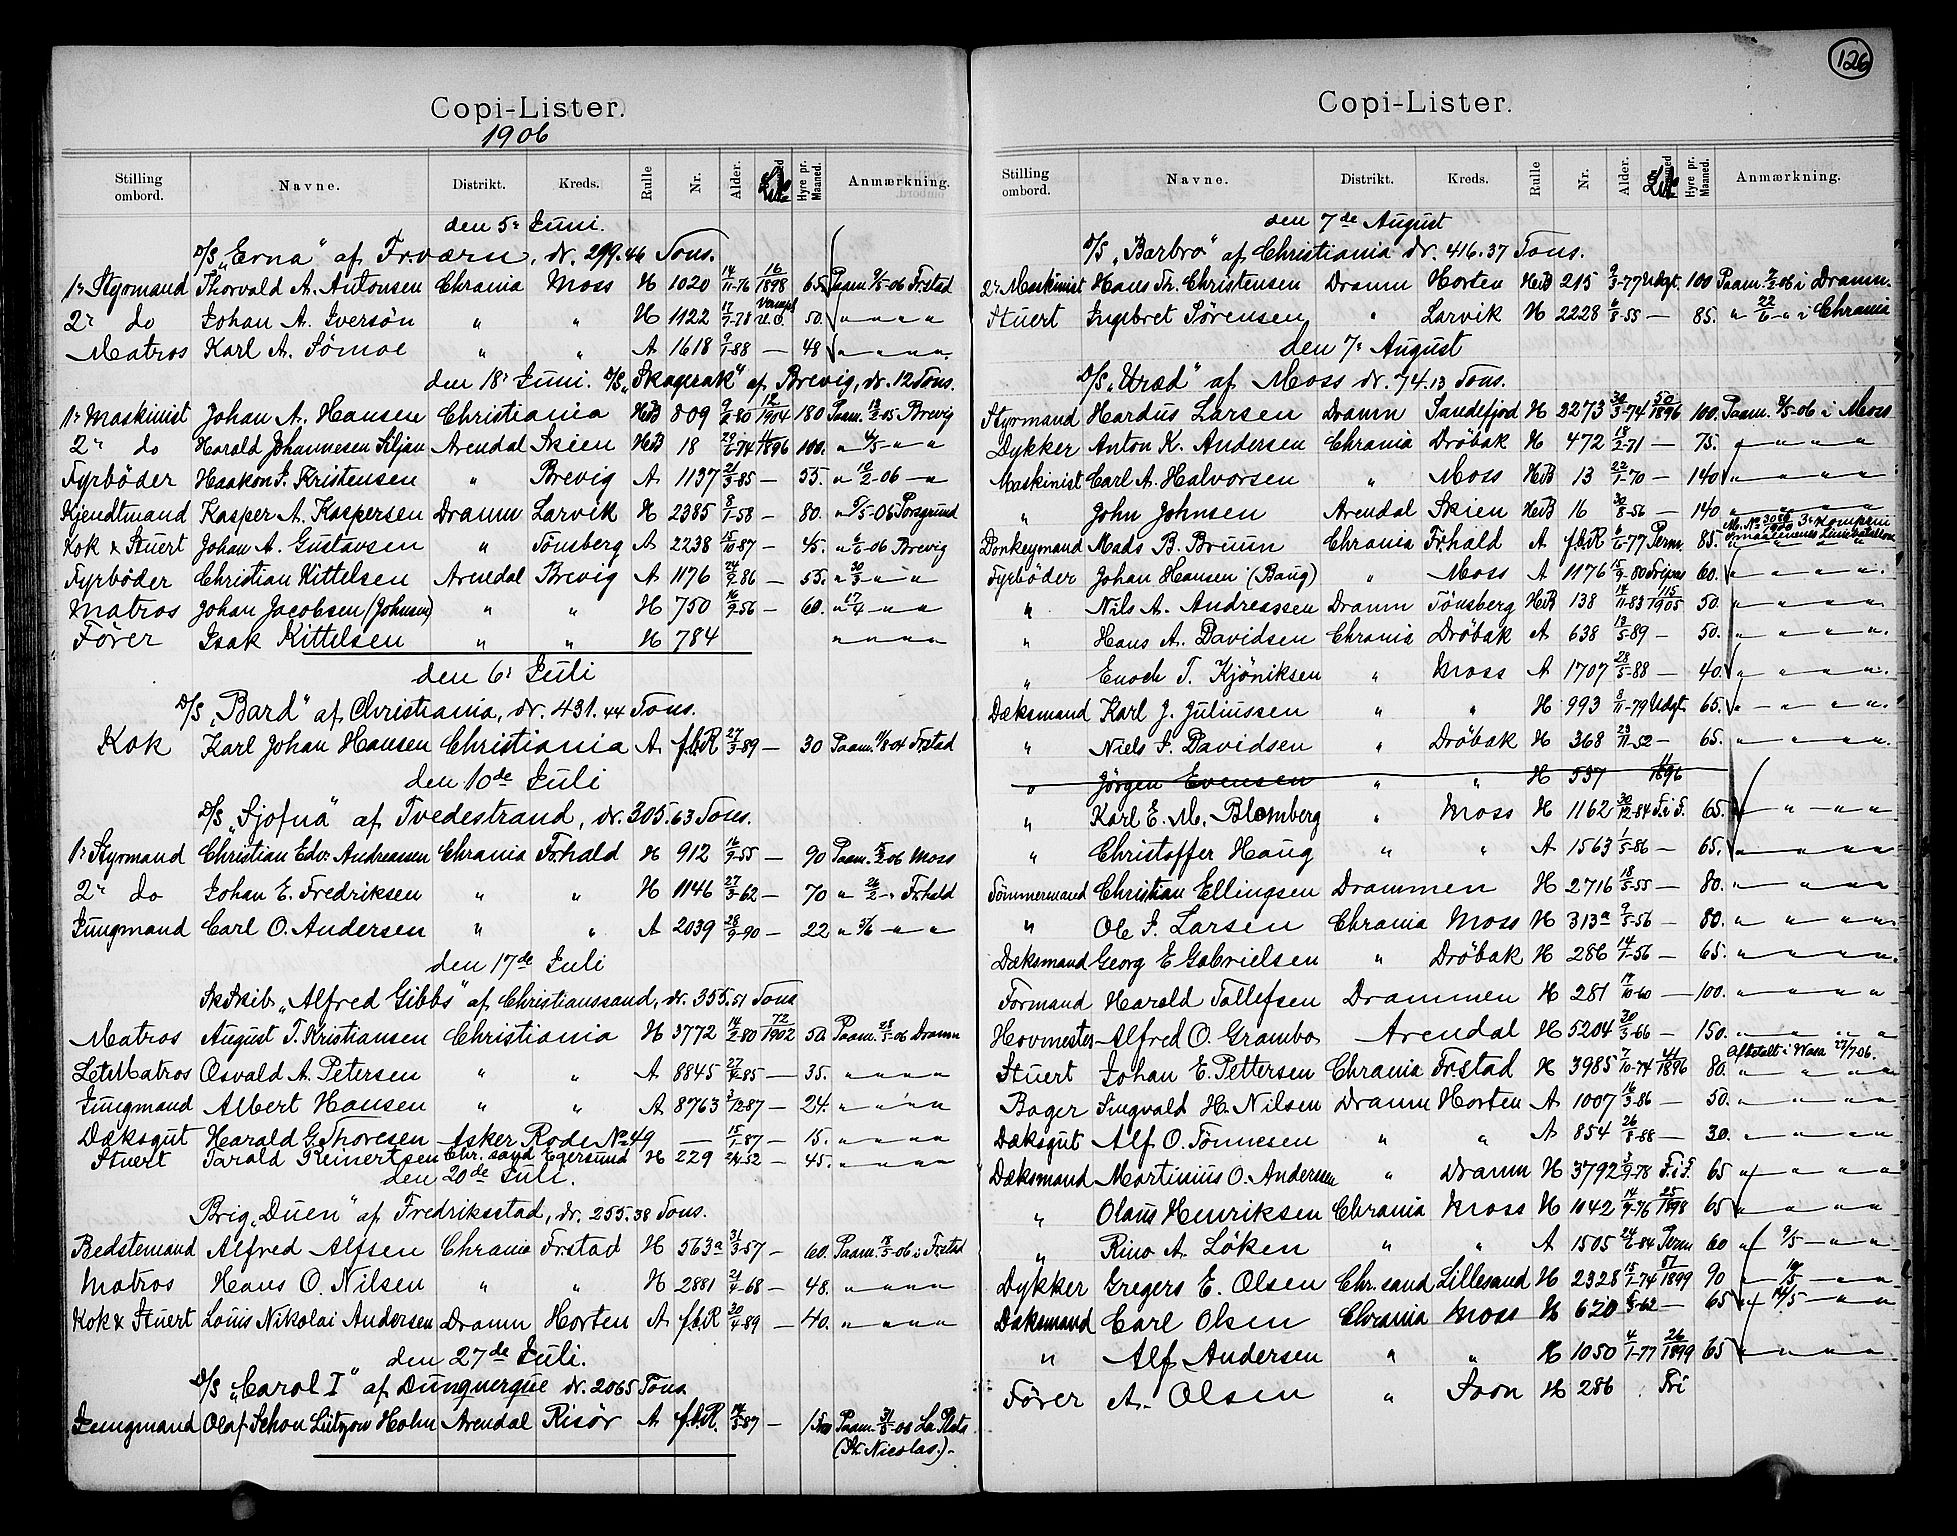 126
Copi-Lister.
1906
Stilling ombord. Navne. Distrikt. Kreds. Rulle Nr. Alder. Hyre pr. Maaned. Anmærkning.
den 5' Juni.
D/S „Erna" af Fr.værn, dr. 299.46 Tons.
1' Styrmand Thorvald A. Antonsen Chrania Moss H 1020 14/11-76 16/1898 65 Paam. 9/5-06 Fr.stad
2' do Johan A. Iversön „ „ H 1122 17/7-78 50. „ „ „ „
Matros Karl A. Sömoe „ „ A 1618 9/1-88 — 48 „ „ „ „
den 18' Juni. D/S „Skagerak" af Brevig, dr. 12 Tons.
1' Maskinist Johan A. Hansen Christiania HvB 809 9/6-80 12/1904 180 Paam. 13/3-05 Brevig
2' do Harald Johannesen Siljan Arendal Skien HvB 18 29/6-74 1896 100. „ 4/5 — „ „
Fyrböder Haakon J. Kristensen „ Brevig A 1137 21/3-85 — 55. „ 10/2-06 — „
Kjendtmand Kasper A. Kaspersen Dramn Larvik H 2385 8/1-58 — 80. „ 5/5-06 Porsgrund
Kok & Stuert Johan A. Gustavsen „ Tönsberg A 2238 15/10-87 — 45. „ 6/6-06 Brevig
Fyrböder Christian Kittelsen Arendal Brevig A 1176 24/9-86 — 55. „ 30/3 — „ „
Matros Johan Jacobsen (Johnsen) „ „ H 750 16/9-56 — 60. „ 17/4 — „ „
Förer Isak Kittelsen „ „ H 784 „ „ „ „
den 6' Juli
D/S „Bard" af Christiania, dr. 431.44 Tons.
Kok Karl Johan Hansen Christiania A f.b.R 27/3-89 — 30 Paam. 11/8-04 Fr.stad
den 10de Juli
D/S „Sjofna" af Tvedestrand, dr. 305.63 Tons.
1' Styrmand Christian Edv. Andreassen Chrania Fr.hald H 912 16/9-55 — 90 Paam. 06 Moss
2' do Johan E. Fredriksen „ „ H 1146 27/3-62 — 70 „ 26/2 — „ Fr.hald
Jungmand Carl O. Andersen „ „ A 2039 28/9-90 — 22 „ 5/6 — „ „
den 17de Juli
Sk.Skib. „Alfred Gibbs" af Christianssand, dr. 355.51 Tons
Matros August T. Kristiansen Christiania H 3772 14/2-80 72/1902 50. Paam. 28/5-06 Dramn
LetMatros Osvald A. Petersen „ „ A 8845 27/4-85 — 35. „ „ „ „
Jungmand Albert Hansen „ „ A 8763 3/12-87 — 24. „ „ „ „
Dæksgut Harald G. Thoresen Asker Rode No 49 — 15/1-87 — 15. „ „ „ „
Stuert Tarald Reinertsen Chr.sand Egersund H 229 2/4-52 — 45. „ „ „ „
den 20de Juli.
Brig „Duen" af Fredriksstad, dr. 255.38 Tons.
Bedstemand Alfred Alfsen Chrania Fr.stad H 563a 31/3-57 — 60. Paam. 18/5-06 i Fr.stad
Matros Hans O. Nilsen „ „ H 2881 21/4-68 — 48. „ „ „ „
Kok & Stuert Louis Nikolai Andersen Dramn Horten A f.b.R 30/4-89 — 40. „ „ „ „
den 27de Juli.
D/S „Carol I" af Dunquerque dr. 2065 Tons
Jungmand Olaf Schou Lützow Holm Arendal Risör A f.b.R. 14/5-87 — Paam. 31/5-06 La Plata
(St. Nicolas.)-
Copi-Lister.
Stilling ombord. Navne. Distrikt. Kreds. Rulle Nr. Alder. Hyre pr. Maaned. Anmærkning.
den 7de August
D/S „Barbro" af Christiania dr. 416.37 Tons.
2' Maskinist Hans Th. Christensen Dramn Horten HvB 215 2/3-77 Udgt. 100 Paam. 2/2-06 i Dramn.
Stuert Ingebret Sörensen „ Larvik H 2228 6/8-55 — 85. „ 22/6 - „ i Chrania
den 7' August
D/S „Uræd" af Moss dr. 74.13 Tons.
Styrmand Hardus Larsen Dramn Sandefjord H 2273 30/3-74 50/1896 100. Paam. 3/5-06 i Moss
Dykker Anton K. Andersen Chrania Dröbak H 472 18/2-71 — 75. „ „ „ „
Maskinist Carl A. Halvorsen „ Moss HvB 13 22/1-70 — 140 „ „ „ „
„ John Johnsen Arendal Skien HvB 16 30/8-56 — 140 „ „ „ „
Donkeymand Mads B. Bruun Chrania Fr.hald A f.b.R 6/6-77 Perm. 85.
Fyrböder Johan Hansen (Baug) „ Moss A 1176 15/9-80 Fripas 60. „ „ „ „
„ Nils A. Andreassen Dramn Tönsberg HvB 138 14/11-83 115/1905 50. „ „ „ „
„ Hans A. Davidsen Chrania Dröbak A 638 13/5-89 — 50. „ „ „ „
„ Enoch T. Kjöniksen „ Moss A 1707 28/5-88 — 40. „ „ „ „
Dæksmand Karl J. Juliussen „ „ H 993 8/11-79 Udgt. 65. „ „ „ „
„ Niels J. Davidsen „ Dröbak H 368 23/11-52 — 65. „ „ „ „
„ Jörgen Evensen „ „ H 557 11/1896
„ Karl E. M. Blomberg „ Moss H 1162 30/12-84 F.i.F. 65. „ „ „ „
„ Christoffer Haug „ „ A 1563 1/5-86 — 65. „ „ „ „
Tömmermand Christian Ellingsen Drammen H 2716 18/5-55 — 80. „ „ „ „
„ Ole J. Larsen Chrania Moss H 313a 9/5-56 — 80. „ „ „ „
Dæksmand Georg E Gabrielsen „ Dröbak H 286 14/1-56 — 65. „ „ „ „
Formand Harald Tollefsen Drammen H 281 17/10-60 — 100. „ „ „ „
Hovmester Alfred O. Grambo Arendal H 5204 30/3-66 — 150. „ „ „ „
Afbetalt i Wasa 27/7 06.
Stuert Johan E. Pettersen Chrania Fr.stad H 3985 7/10-74 41/1896 80. „ „ „ „
Bager Ingvald H. Nilsen Dramn Horten A 1007 16/3-86 — 50. „ „ „ „
Dæksgut Alf O. Tönnesen „ „ A 854 26/8-88 — 30. „ „ „ „
Dæksmand Martinius O. Andersen „ Dramn H 3792 3/9-78 F.i.F. 65 „ „ „ „
„ Olaus Henriksen Chrania Moss H 1042 14/4-76 25/1898 65 „ „ „ „
„ Rino A. Löken „ „ A 1505 24/6-84 Perm 60 „ 9/5 — „ „
Dykker Gregers E. Olsen Chr.sand Lillesand H 2328 15/1-74 1899 90 „ 10/5 — „ „
Dæksmand Carl Olsen Chrania Moss H 620 6/3-62 — 65 „ 14/5 — „ „
„ Alf Andersen „ „ H 1050 4/1-77 26/1899 65 „ „ „ „
Förer A. Olsen „ Soon H 286 Fri